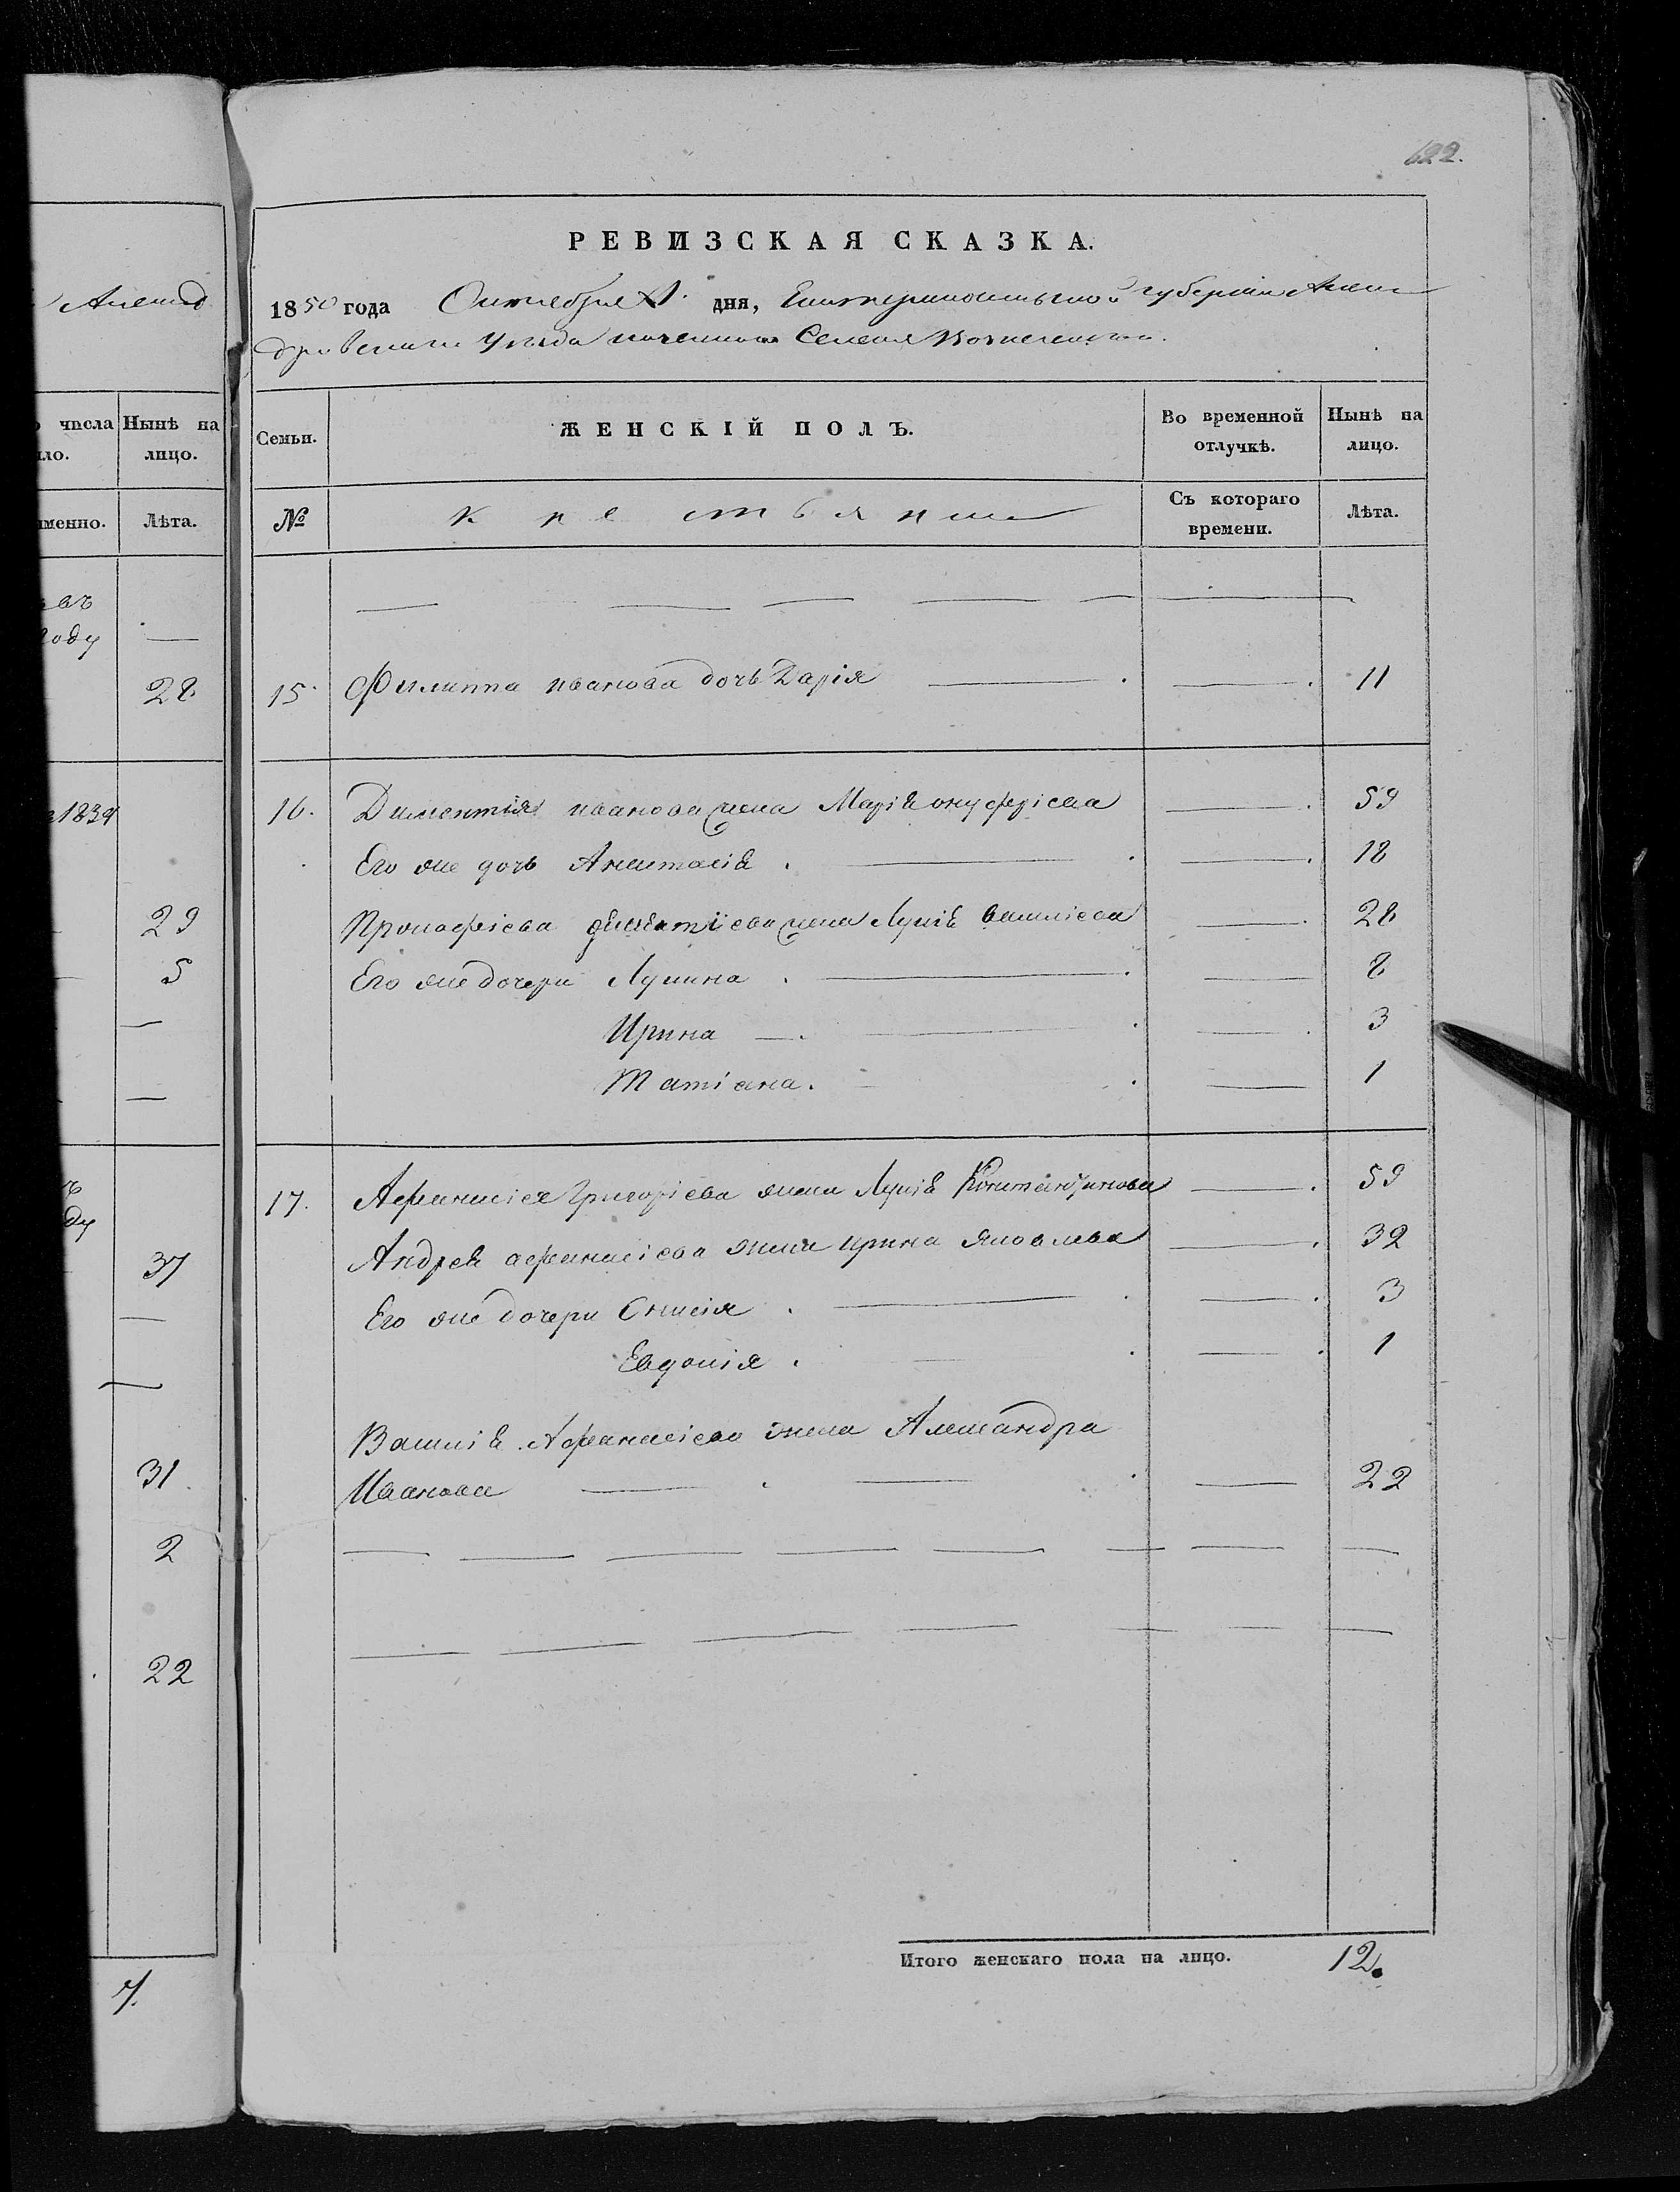 622.
Александ
числа
Нынѣ на
ло.
лицо.
именно.
Лѣта.
въ
году
28
1839
29
5
ду
37
31
2
22
7.
РЕВИЗСКАЯ СКАЗКА.
1850 года Октября дня, Екатеринославской губернии Алексан
дровскаго уѣзда казеннаго Селения Вознесенскаго.
Семьи.
ЖЕНСКІЙ ПОЛЪ.
Во временной отлучкѣ.
Нынѣ на лицо.
№
крестьянки
Съ котораго времени.
Лѣта.
15. Филиппа иванова дочь Дарія 11
16. Дементія иванова жена Марія онуфріева 59
Его же дочь Анастасія 18
Прокофіева дементіева жена Лукія василіева 28
Его же дочери Лукина 8
Ирина 3
Татіана. 1
17. Афанасія Григоріева жена Лукія Константинова 59
Андрея афанасіева жена ирина яковлева 32
Его же дочери Енисія 3
Евдокія 1
Василія Афанасіева жена Александра
Иванова 22
Итого женскаго пола на лицо. 12.